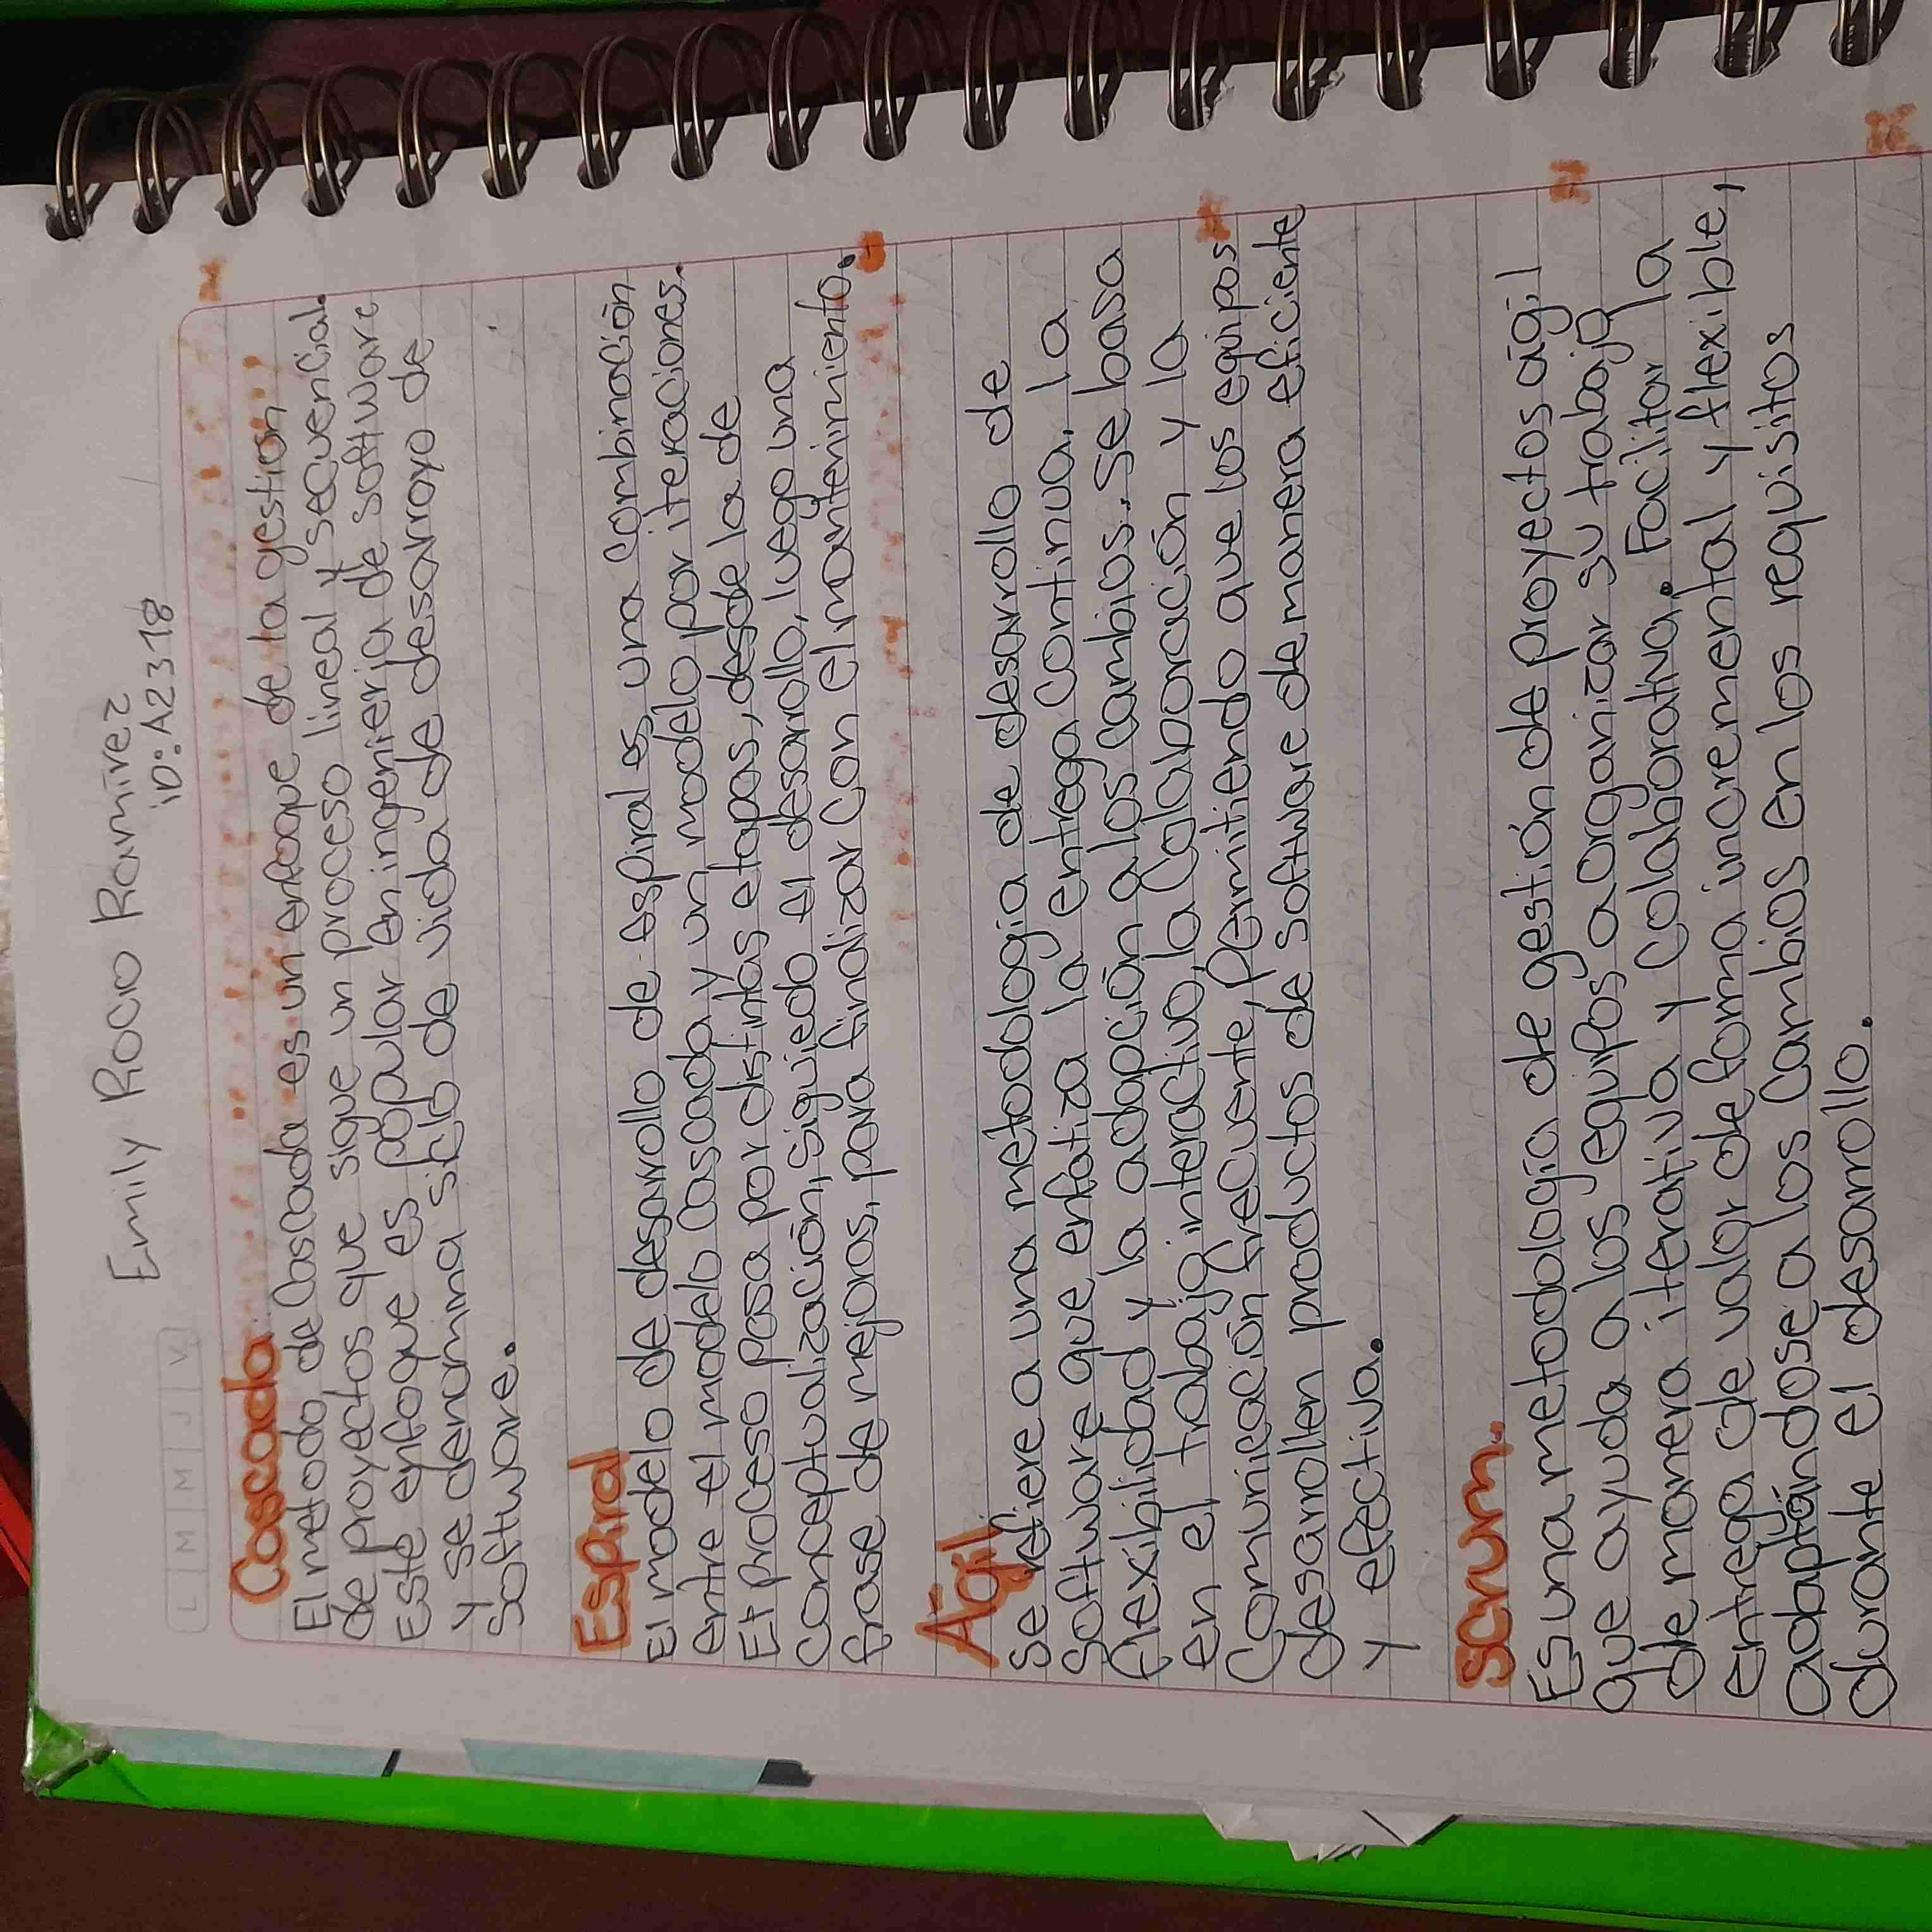 Emily Rocio Ramirez
iD: A2318
L M M J V
Cascada
El metodo de Cascada es un enfoque de la gestion
de proyectos que sigue un proceso lineal y secuencial.
Este enfoque es popular en ingenieria de software
y se denomina siclo de vida de desarroyo de
software.
Espiral
El modelo de desarrollo de espiral es una combinación
entre el modelo cascada y un modelo por iteraciones.
El proceso pasa por distintas etapas, desde la de
conceptualización, siguiedo el desarrollo, luego una
frase de mejoras, para finalizar con el mantenimiento.
Ágil
Se refiere a una metodologia de desarrollo de
software que enfatiza la entrega continua, la
flexibilidad y la adapción a los cambios. se basa
en el trabajo interactivo, la Colaboración y la
Comunicación frecuente, Permitiendo que los equipos
desarrollen productos de software de manera eficiente
y efectiva.
Scrum.
Es una metodologia de gestión de proyectos ágil
que ayuda a los equipos a organizar su trabajo
de manera iterativa y colaborativa. Facilitar la
entrega de valor de forma incremental y flexible,
adaptándose a los cambios en los requisitos
durante el desarrollo.